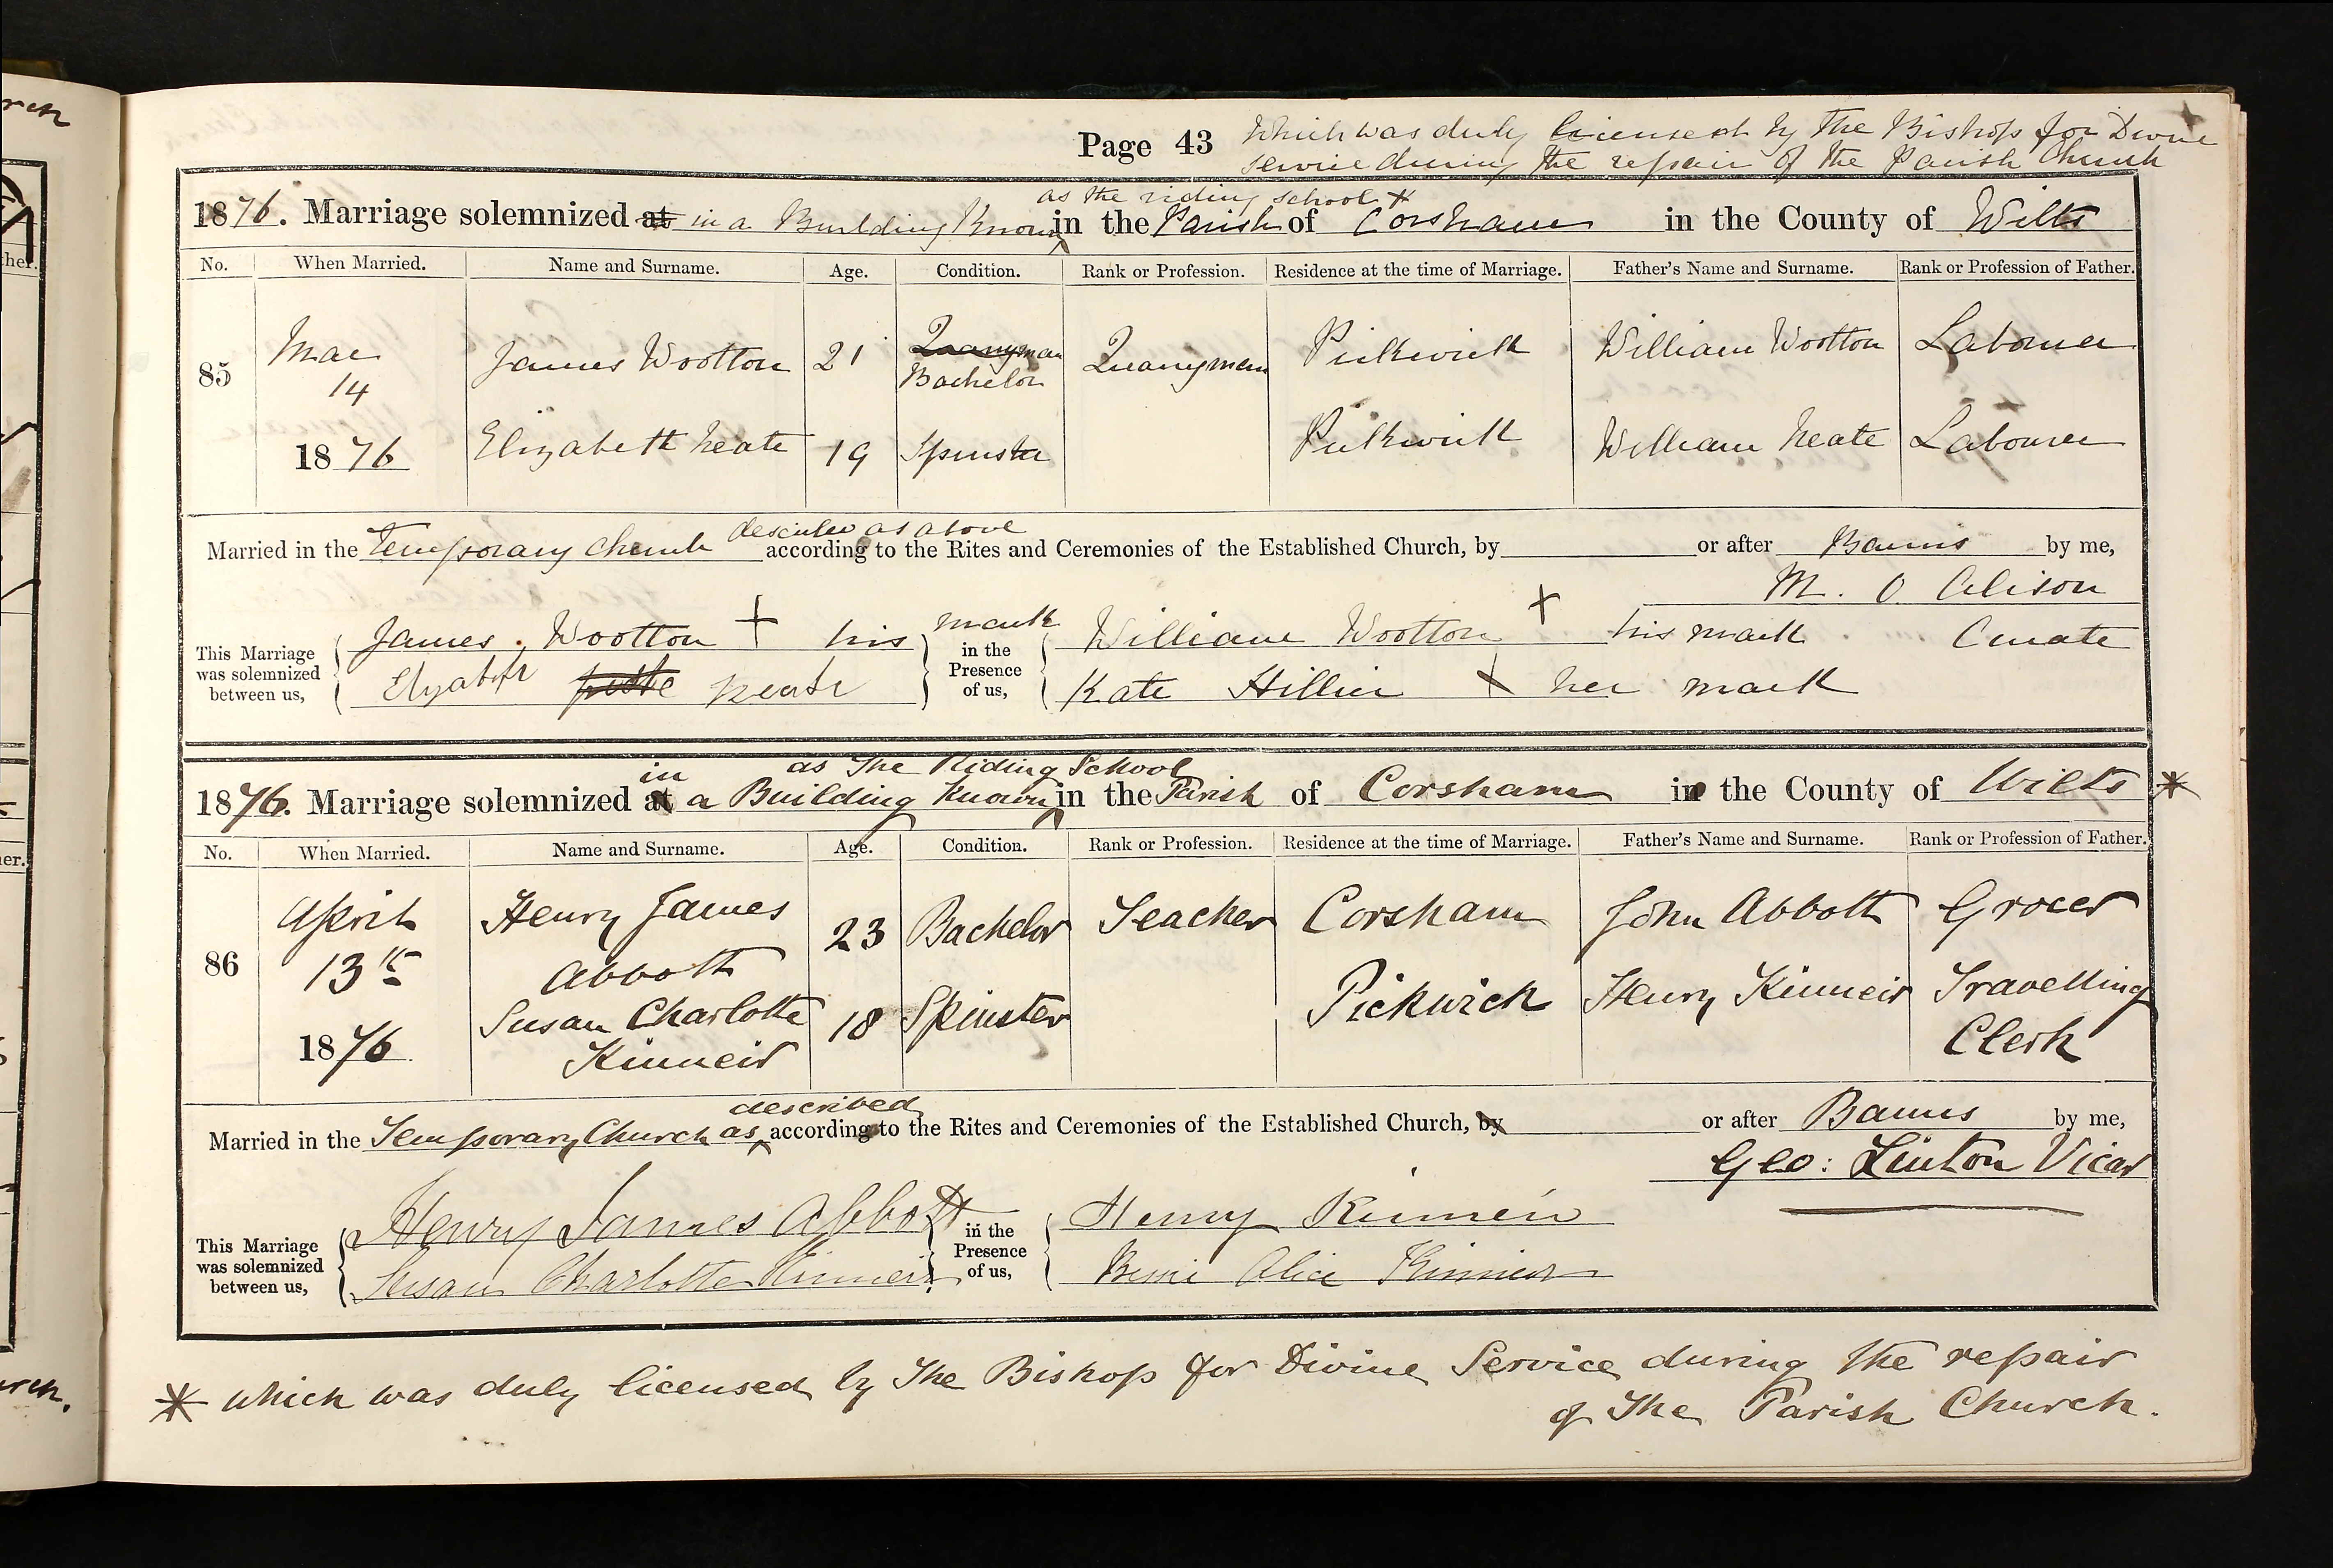 rch
Page 43 Which was duly licensed by the Bishop for Divine
service during the repair of the Parish Church
as the riding school
1876. Marriage solemnized at in a Building Known in the Parish of Corsham in the County of Wilts
No. When Married. Name and Surname. Age. Condition. Rank or Profession. Residence at the time of Marriage. Father's Name and Surname. Rank or Profession of Father.
85 Mar 14 1876
James Wootton 21 Quarryman Bachelor Quarryman Pickwick William Wootton Labourer
Elizabeth Neate 19 Spinster Pickwick William Neate Labourer
described as above
Married in the temporary church according to the Rites and Ceremonies of the Established Church, by or after Banns by me,
M. O. Alison
Curate
This Marriage was solemnized between us,
James Wootton + his mark
Elizabeth Neate
in the Presence of us,
William Wootton + his mark
Kate Hillier + her mark
in as The Riding School
1876. Marriage solemnized at a Building Known in the Parish of Corsham in the County of Wilts *
No. When Married. Name and Surname. Age. Condition. Rank or Profession. Residence at the time of Marriage. Father's Name and Surname. Rank or Profession of Father.
86 April 13th 1876
Henry James Abbott 23 Bachelor Teacher Corsham John Abbott Grocer
Susan Charlotte Kinneir 18 Spinster Pickwick Henry Kinneir Travelling Clerk
described
Married in the Temporary Church as according to the Rites and Ceremonies of the Established Church, by or after Banns by me,
Geo: Linton Vicar
This Marriage was solemnized between us,
Henry James Abbott
Susan Charlotte Kinneir
in the Presence of us,
Henry Kinneir
Alice Kinneir
* which was duly licensed by The Bishop for Divine Service during the repair
of The Parish Church.